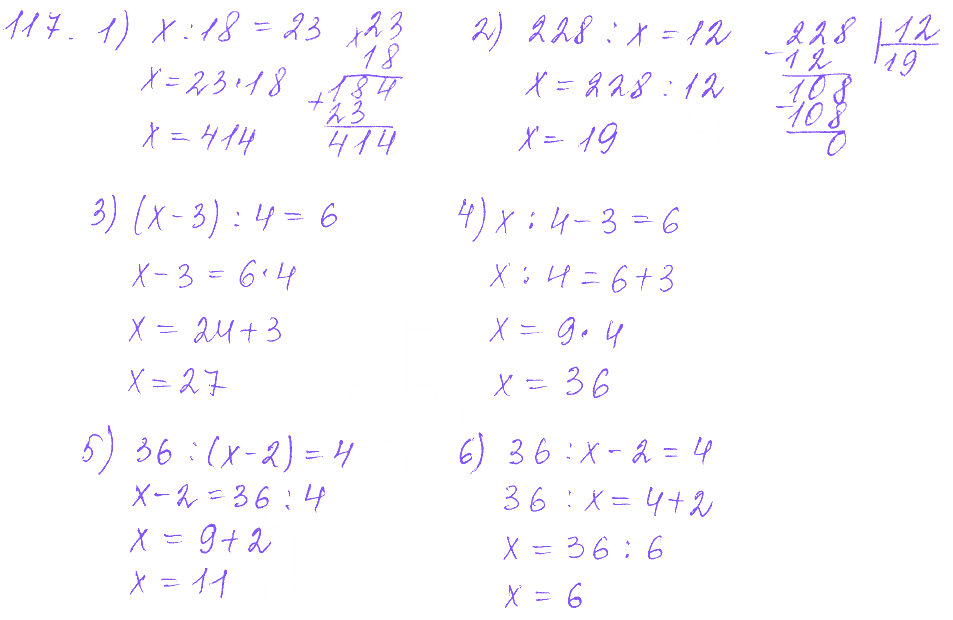 117. 1) x : 18 = 23
x = 23 · 18
x = 414
× 23
18
+ 184
23
414
2) 228 : x = 12
x = 228 : 12
x = 19
228 | 12
- 12 19
108
- 108
0
3) (x - 3) : 4 = 6
x - 3 = 6 · 4
x = 24 + 3
x = 27
4) x : 4 - 3 = 6
x : 4 = 6 + 3
x = 9 · 4
x = 36
5) 36 : (x - 2) = 4
x - 2 = 36 : 4
x = 9 + 2
x = 11
6) 36 : x - 2 = 4
36 : x = 4 + 2
x = 36 : 6
x = 6